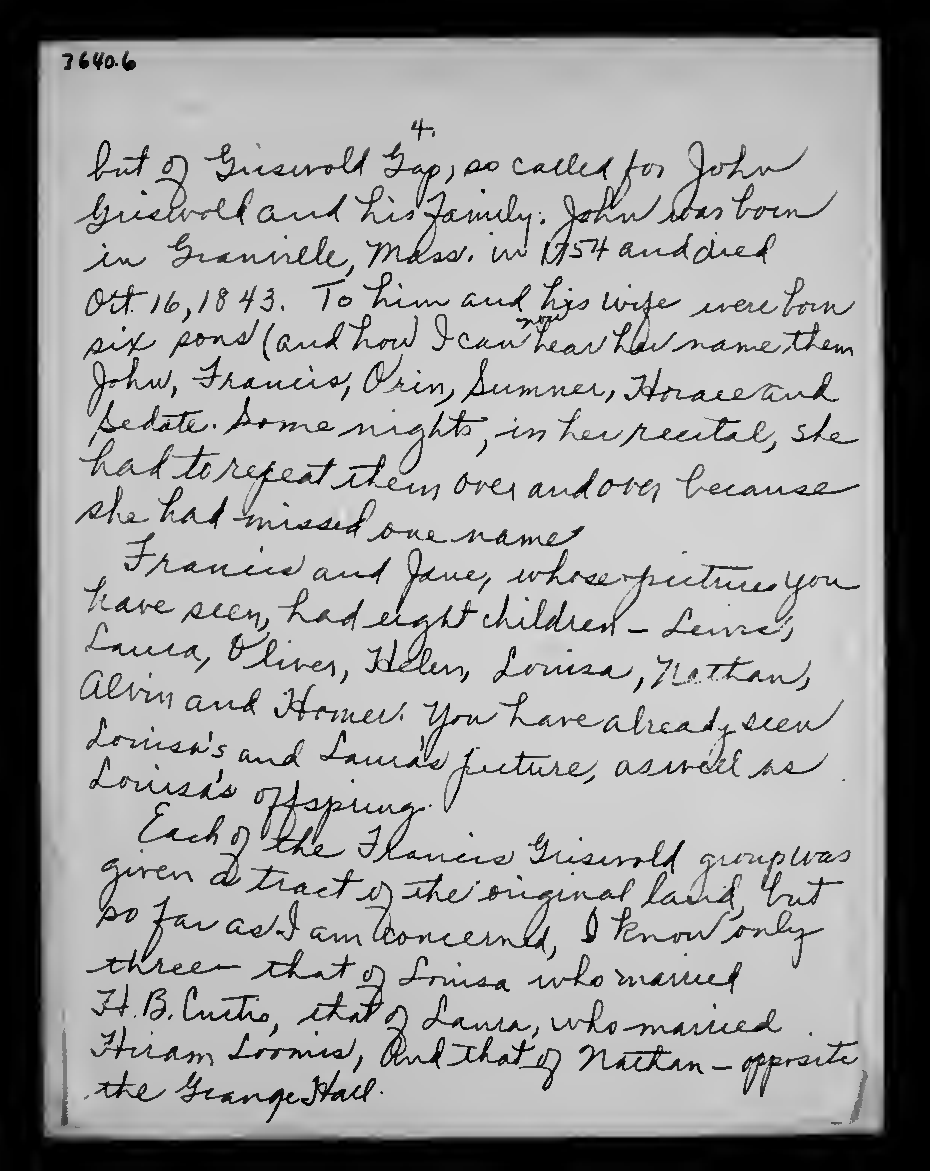 3640.6
4.
but of Griswold Gap, so called for John
Griswold and his family. John was born
in Granville, Mass. in 1754 and died
Oct. 16, 1843. To him and his wife were born
now
six sons (and how I can hear her name them
John, Francis, Orin, Sumner, Horace and
Sedate. Some nights, in her recital, she
had to repeat them over and over because
she had missed one name
Francis and Jane, whose pictures you
have seen, had eight children – Lewis,
Laura, Oliver, Helen, Louisa, Nathan,
Alvin and Homer. You have already seen
Louisa's and Laura's picture, as well as
Louisa's offspring.
Each of the Francis Griswold group was
given a tract of the original land, but
so far as I am concerned, I know only
three – that of Louisa who married
H. B. Curtis, that of Laura, who married
Hiram Loomis, and that of Nathan – opposite
the Grange Hall.